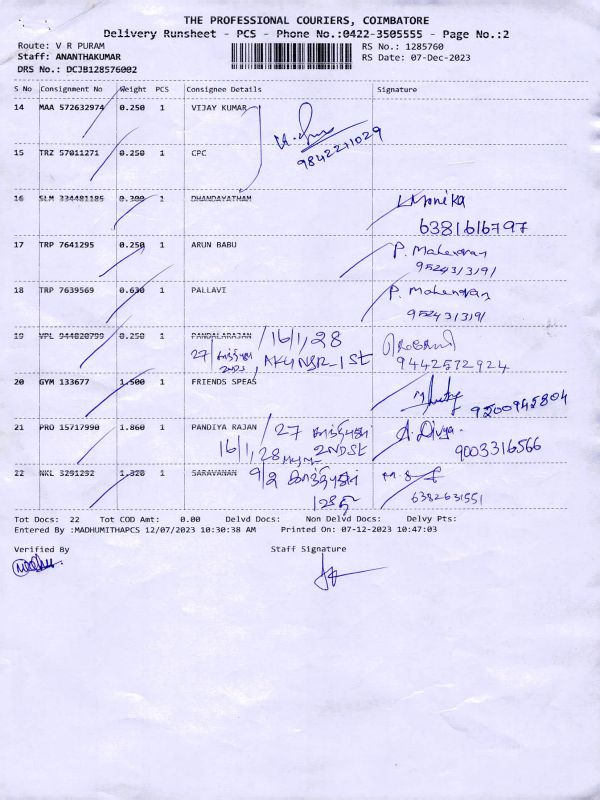 THE PROFESSIONAL COURIERS, COIMBATORE
Delivery Runsheet - PCS - Phone No.:0422-3505555 - Page No.:2
Route: V R PURAM
RS No.: 1285760
Staff: ANANTHAKUMAR
RS Date: 07-Dec-2023
DRS No.: DCJB128576002
S No Consignment No Weight PCS Consignee Details Signature
14 MAA 572632974 0.250 1 VIJAY KUMAR
9842211029
15 TRZ 57011271 0.250 1 CPC
16 SLM 334481185 0.300 1 DHANDAYATHAM Monika
6381616797
17 TRP 7641295 0.250 1 ARUN BABU P. Mahendran
9524313191
18 TRP 7639569 0.630 1 PALLAVI P. Mahendran
9524313191
19 VPL 944820799 0.250 1 PANDALARAJAN / 16/1, 28
27/ 1st
9442572924
20 GYM 133677 1.500 1 FRIENDS SPEAS
9500945804
21 PRO 15717990 1.860 1 PANDIYA RAJAN / 27 A. Divya.
16/1, 28 2ND St 9003316566
22 NKL 3291292 1.320 1 SARAVANAN 9/2
6382631551
Tot Docs: 22 Tot COD Amt: 0.00 Delvd Docs: Non Delvd Docs: Delvy Pts:
Entered By :MADHUMITHAPCS 12/07/2023 10:30:38 AM Printed On: 07-12-2023 10:47:03
Verified By Staff Signature